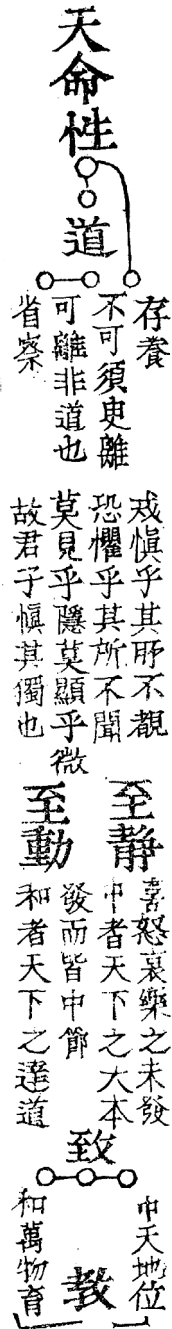 天命性
道
存養
不可須臾離
可離非道也
省察
戒慎乎其所不覩
恐懼乎其所不聞
莫見乎隱莫顯乎微
故君子慎其獨也
至靜
至動
喜怒哀樂之未發
中者天下之大本
發而皆中節
和者天下之達道
致
中天地位
教
和萬物育